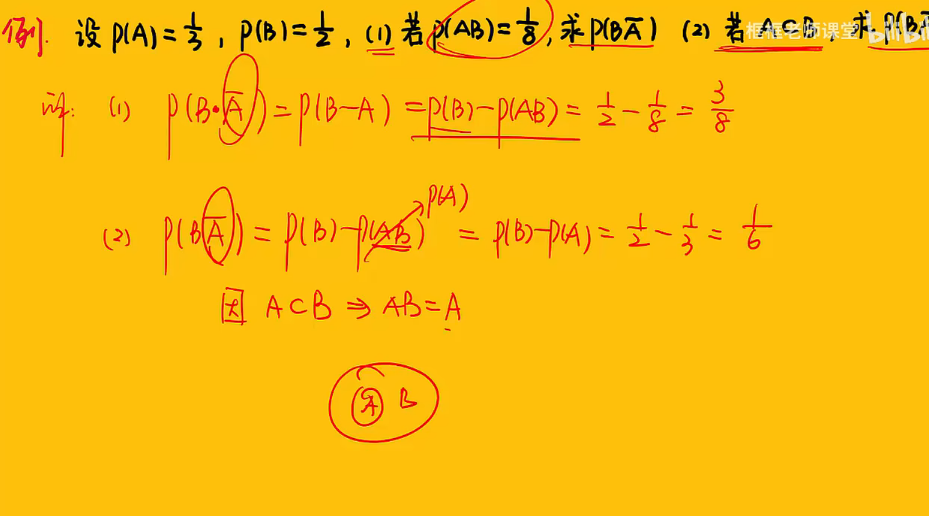 例. 设 P(A)=1/3, P(B)=1/2, (1) 若 P(AB)=1/8, 求 P(BA̅) (2) 若 A⊂B, 求 P(B
框框老师课堂 bilibili
解: (1) P(B·A̅)=P(B-A)=P(B)-P(AB)=1/2-1/8=3/8
P(A)
(2) P(BA̅)=P(B)-P(AB)=P(B)-P(A)=1/2-1/3=1/6
因 A⊂B⇒AB=A
A B